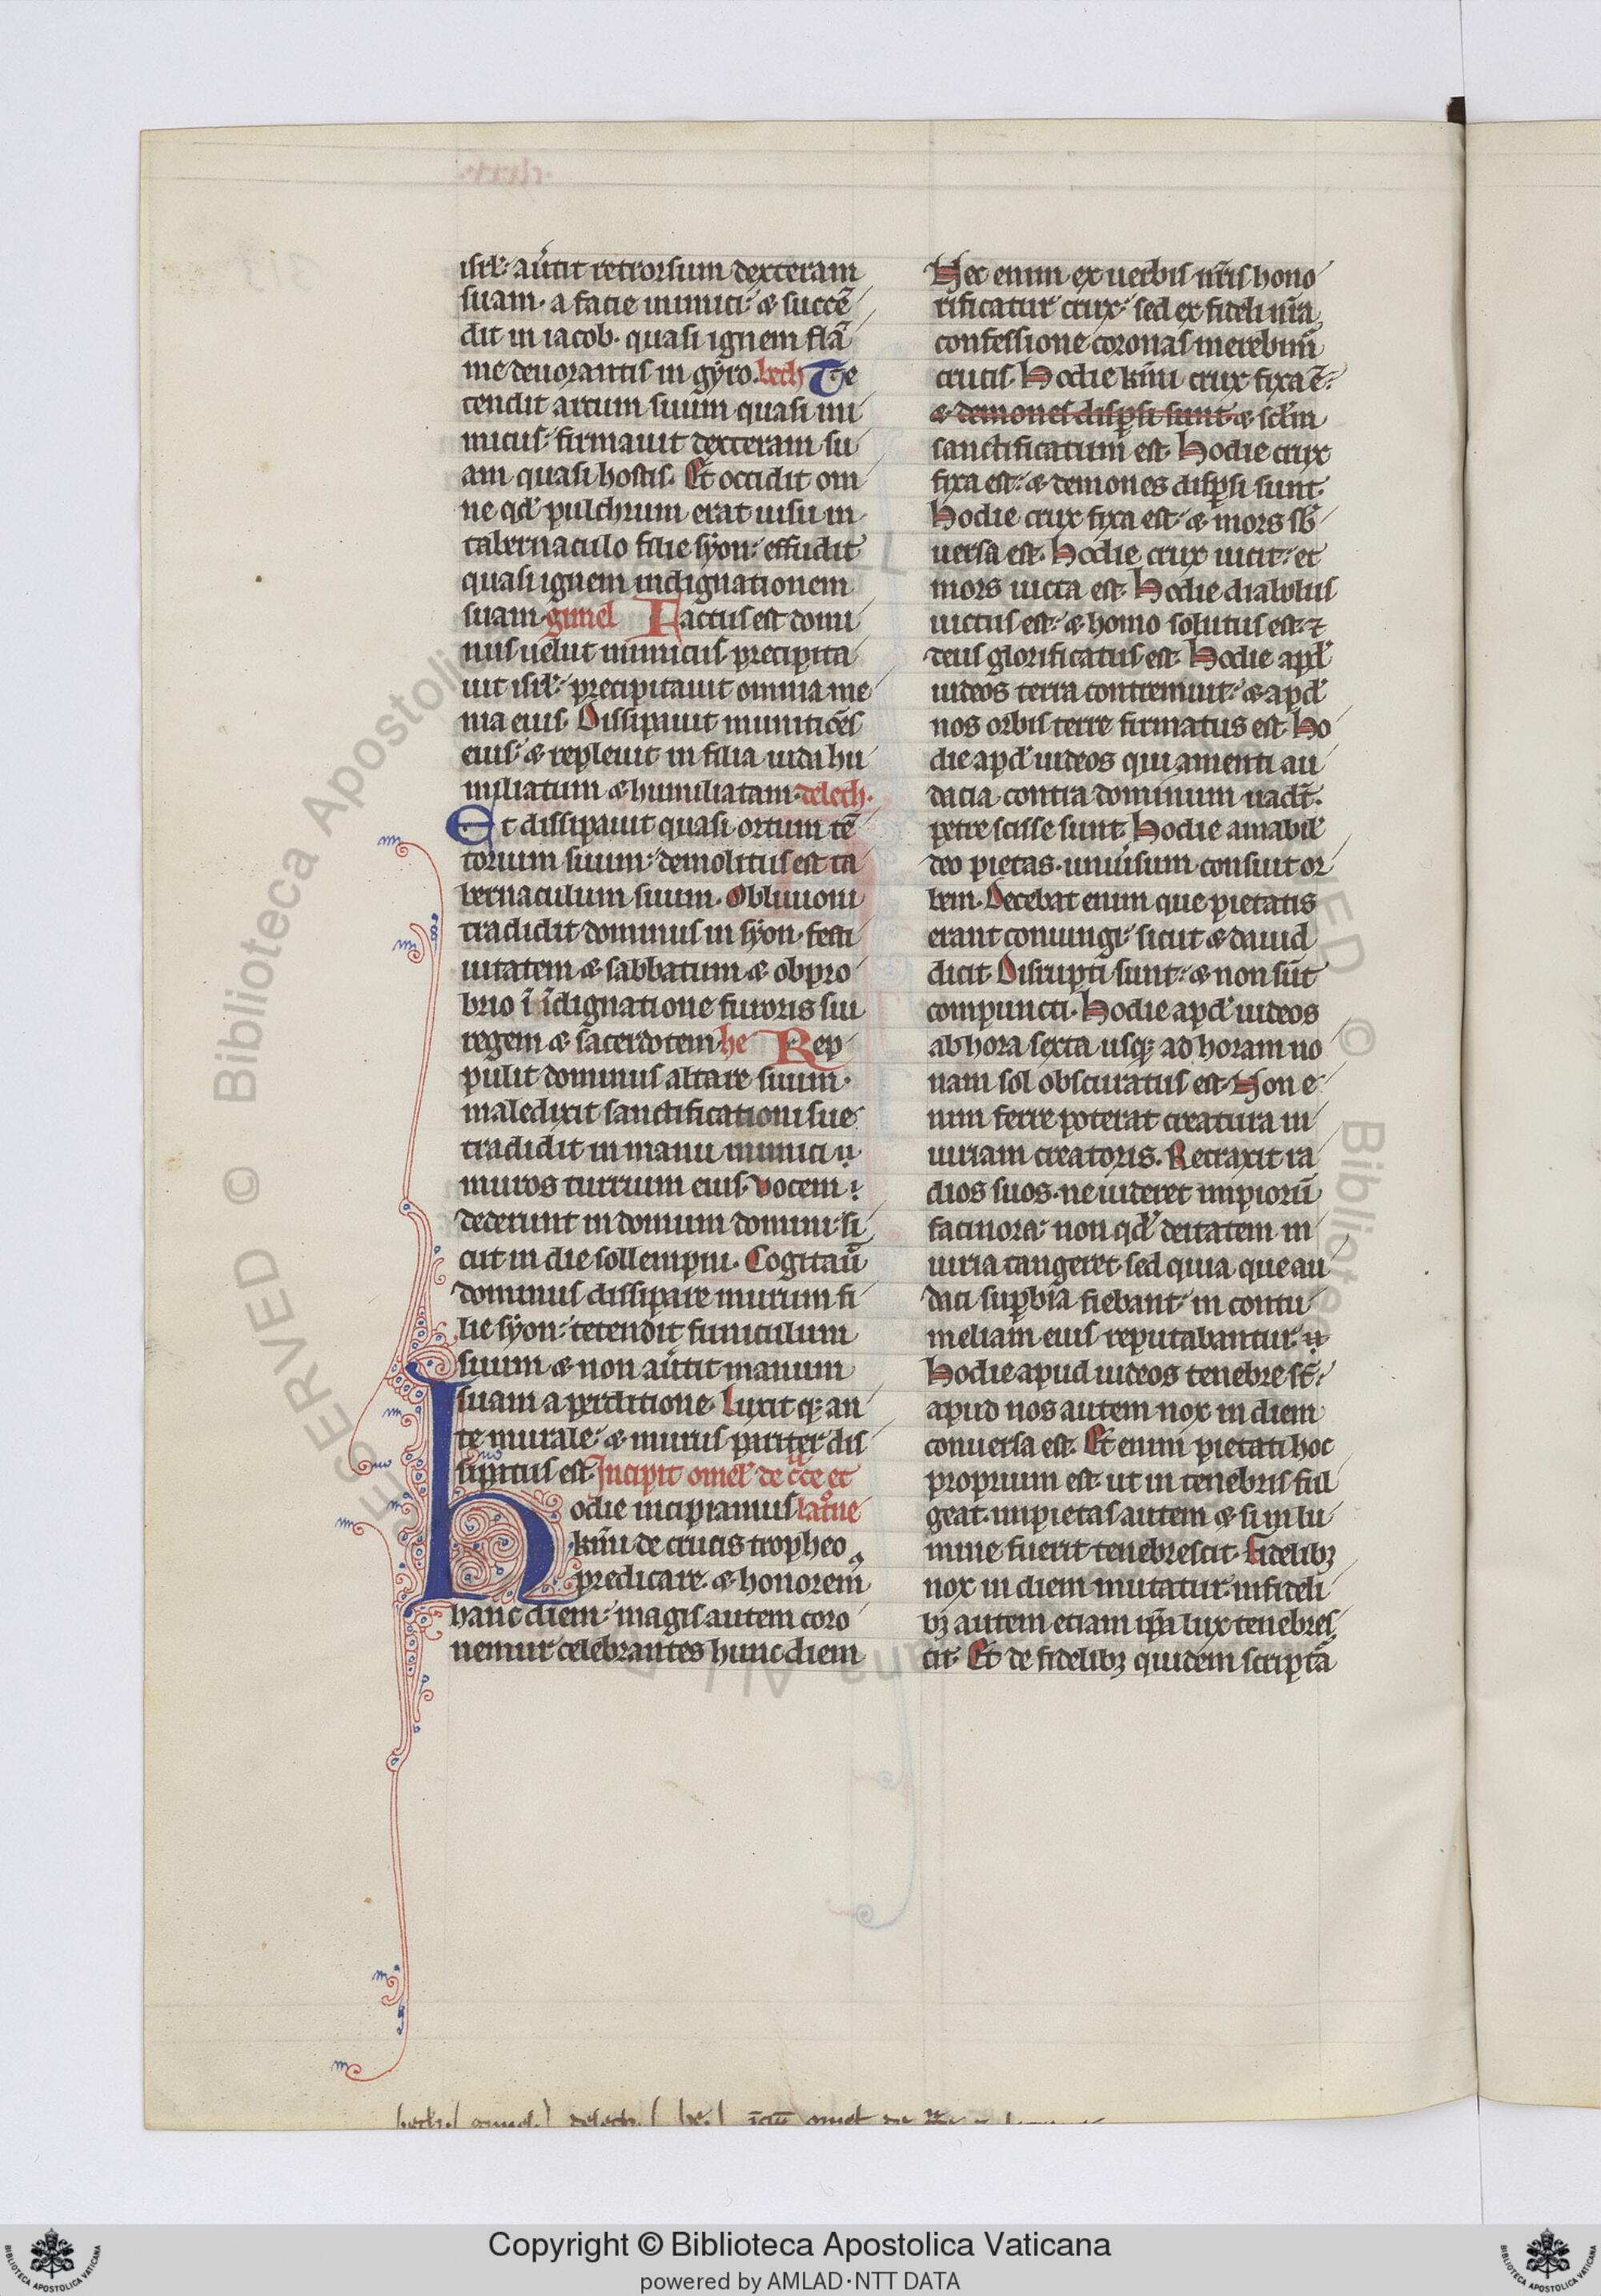 isrl'. au̾tit retrorsum dexteram
suam. a facie inimici. & succē
dit in iacob. quasi ignem flā
me deuorantis in gyro. beth Te
tendit arcum suum quasi ini
micus. firmauit dexteram su
am quasi hostis. Et occidit om
ne qd' pulchrum erat uisu in
tabernaculo filie syon. effudit
quasi ignem indignationem
suam. gimel Factus est domi
nus uelut inimicus. precipita
uit isrl'. precipitauit omnia me
nia eius. Dissipauit munitiōes
eius. & repleuit in filia iuda hu
miliatum & humiliatam. deleth.
Et dissipauit quasi ortum tē
torium suum. demolitus est ta
bernaculum suum. Obliuioni
tradidit dominus in syon. festi
uitatem & sabbatum & obpro
brio ī īdignatione furoris sui
regem & sacerdotem. he Rep
pulit dominus altare suum.
maledixit sanctificationi sue
tradidit in manu inimici
muros turrium eius. Vocem
dederunt in domum domini. si
cut in die sollempni. Cogitau̾
dominus dissipare murum fi
lie syon. tetendit funiculum
suum & non au̾tit manum
suam a perditione. Luxit q; an
te murale. & murus pariter dis
sipatus est. Incipit omel' de c̄ce et
latōne
hodie incipiamus
km̄i de crucis tropheo
predicare. & honorem
hanc diem. magis autem coro
nemur celebrantes hunc diem
Nec enim ex uerbis nr̄is hono
rificatur crux. sed ex fideli nr̄a
confessione coronas merebim̾
crucis. Hodie km̄i crux fixa ē.
& demones disp̄si sunt & sc̄lm
sanctificatum est. Hodie crux
fixa est. & demones disp̄si sunt.
Hodie crux fixa est. & mors sb̾
uersa est. Hodie crux uicit. et
mors uicta est. Hodie diabolus
uictus est. & homo solutus est. ⁊
deus glorificatus est. Hodie apd'
iudeos terra contremuit. & apd'
nos orbis terre firmatus est. Ho
die apd' iudeos qui amenti au
dacia contra dominum uadt̄.
petre scisse sunt. Hodie amabil'
deo pietas. uniu̾sum consuit or
bem. Decebat enim que pietatis
erant coniungi. sicut & dauid
dicit. Disrupti sunt. & non sūt
compuncti. Hodie apd' iudeos
ab hora sexta usq; ad horam no
nam sol obscuratus est. Non e
nim ferre poterat creatura in
iuriam creatoris. Retraxit ra
dios suos. ne uideret impiorū
facinora. non qd' deitatem in
iuria tangeret. sed quia que au
daci sup̄bia fiebant. in contu
meliam eius reputabantur.
Hodie apud iudeos tenebre st̄.
apud nos autem nox in diem
conuersa est. Et enim pietati hoc
proprium est. ut in tenebris ful
geat. impietas autem & si in lu
mine fuerit tenebrescit. Fidelib;
nox in diem mutatur. infideli
b; autem etiam ip̄a lux tenebres
cit. Et de fidelib; quidem scriptā
Copyright © Biblioteca Apostolica Vaticana
powered by AMLAD·NTT DATA